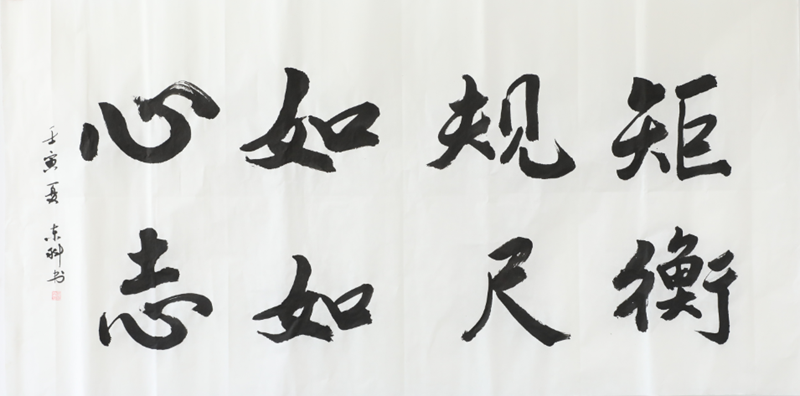 心如规矩
志如尺衡
壬寅夏 东科书